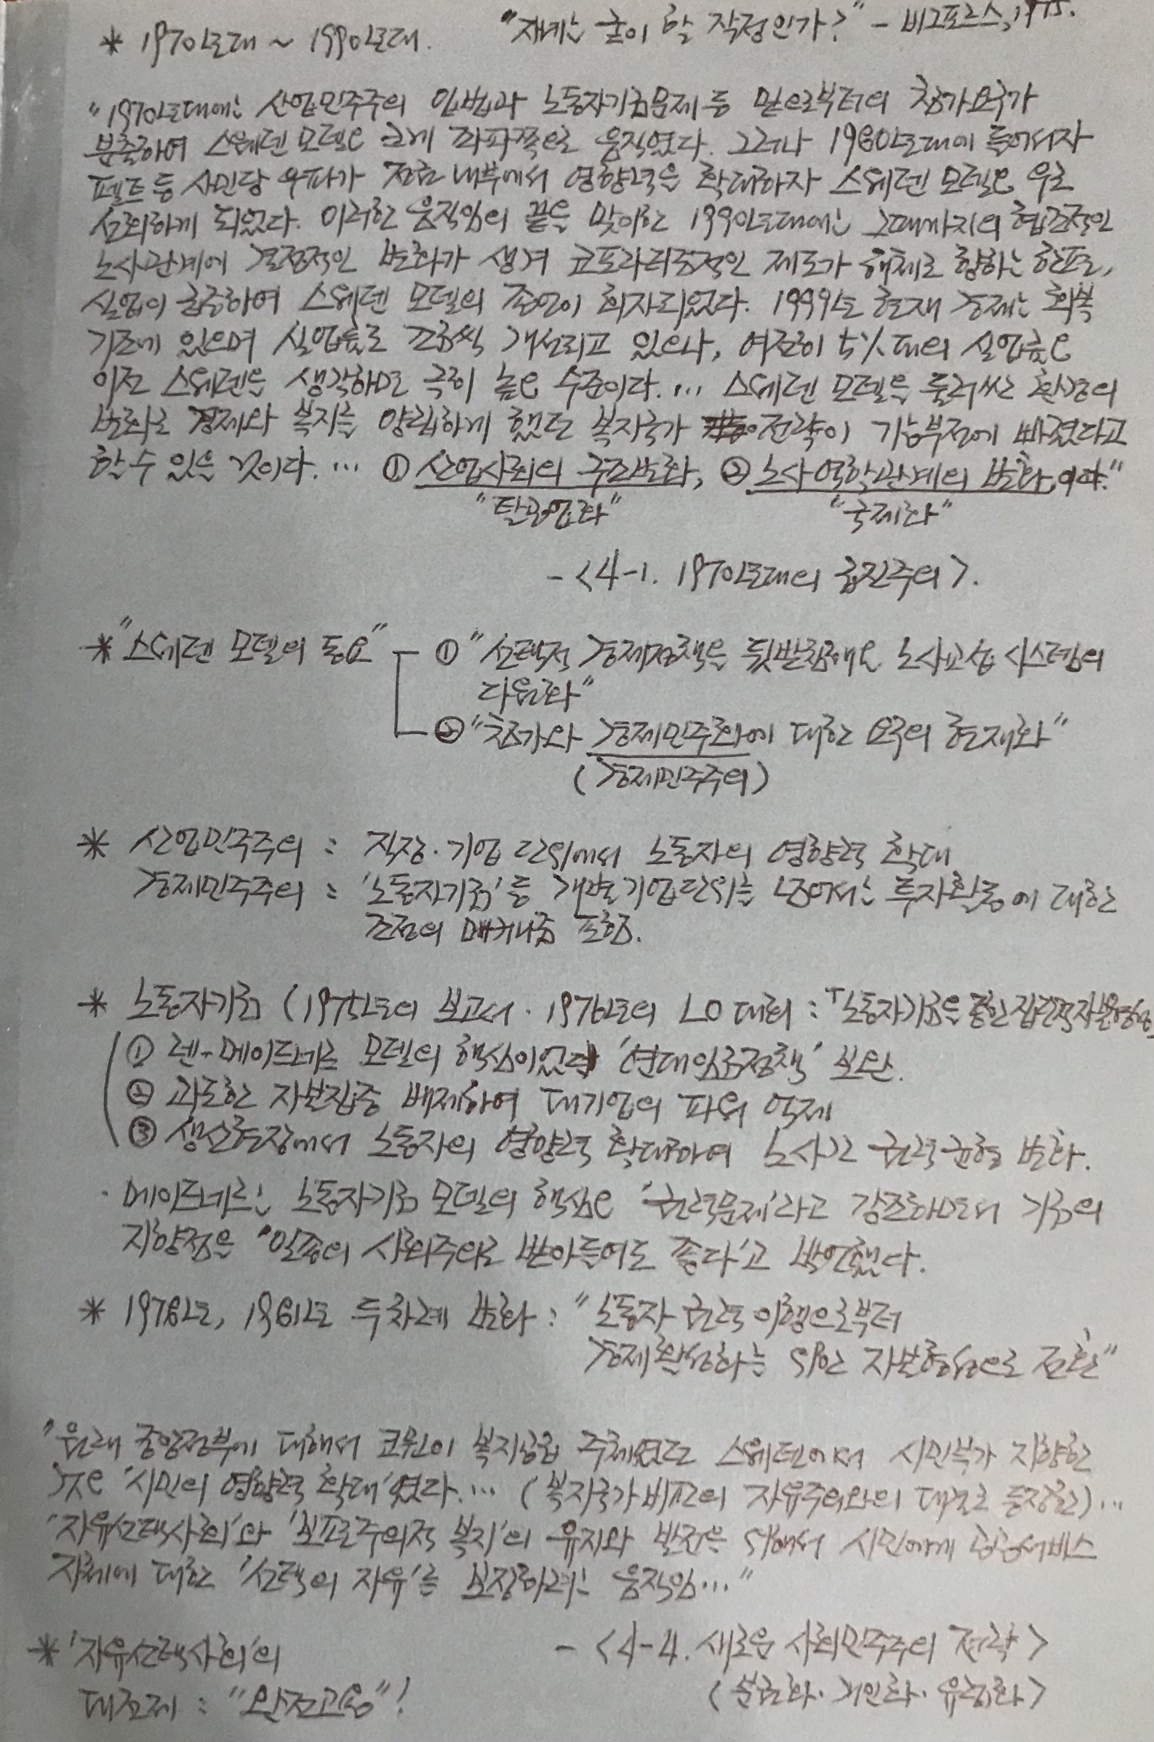 * 1970년대 ~ 1990년대. "재계는 굳이 할 작정인가?" - 비그포르스, 1975.
"1970년대에는 산업민주주의 입법과 노동자기금문제 등 밑으로부터의 참가요구가
분출하여 스웨덴 모델은 크게 좌파쪽으로 움직였다. 그러나 1980년대에 들어서자
펠트 등 사민당 우파가 정권 내부에서 영향력을 확대하자 스웨덴 모델은 우로
선회하게 되었다. 이러한 움직임의 끝을 맞이한 1990년대에는 그때까지의 협조적인
노사관계에 결정적인 변화가 생겨 코포라티즘적인 제도가 해체로 향하는 한편,
실업이 급증하여 스웨덴 모델의 종언이 회자되었다. 1999년 현재 경제는 회복
기조에 있으며 실업률도 조금씩 개선되고 있으나, 여전히 5%대의 실업률은
이전 스웨덴을 생각하면 극히 높은 수준이다. … 스웨덴 모델을 둘러싼 환경의
변화로 경제와 복지를 양립하게 했던 복지국가 전략이 기능부전에 빠졌다고
할 수 있을 것이다. … ① 산업사회의 구조변화, ② 노사역학관계의 변화,이다."
"탈공업화" "국제화"
- <4-1. 1970년대의 급진주의>.
* "스웨덴 모델의 동요" ① "선택적 경제정책을 뒷받침해온 노사교섭 시스템의
다원화"
② "참가와 경제민주화에 대한 요구의 현재화"
(경제민주주의)
* 산업민주주의 : 직장·기업 단위에서 노동자의 영향력 확대
경제민주주의 : '노동자기금' 등 개별기업단위를 넘어서는 투자활동에 대한
조정의 메커니즘 포함.
* 노동자기금 (1975년의 보고서·1976년의 LO 대회 : 「노동자기금을 통한 집단적 자본형성」
① 렌-메이드네르 모델의 핵심이었던 '연대임금정책' 보완.
② 과도한 자본집중 배제하여 대기업의 파워 억제
③ 생산현장에서 노동자의 영향력 확대하여 노사간 권력균형 변화.
· 메이드네르는 노동자기금 모델의 핵심은 '권력문제'라고 강조하면서 기금의
지향점을 '일종의 사회주의로 받아들여도 좋다'고 발언했다.
* 1978년, 1981년 두차례 변화 : "노동자 권력 이행으로부터
경제활성화를 위한 자본형성으로 전환"
"원래 중앙정부에 대해서 코뮌이 복지공급 주체였던 스웨덴에서 시민부가 지향한
것은 '시민의 영향력 확대'였다. … (복지국가비판의 자유주의와의 대조로 등장한) …
'자유선택사회'와 '보편주의적 복지'의 유지와 발전을 위해서 시민에게 공공서비스
자체에 대한 '선택의 자유'를 보장하려는 움직임…"
- <4-4. 새로운 사회민주주의 전략>
* '자유선택사회'의
(분권화·개인화·유연화)
대전제 : "완전고용"!